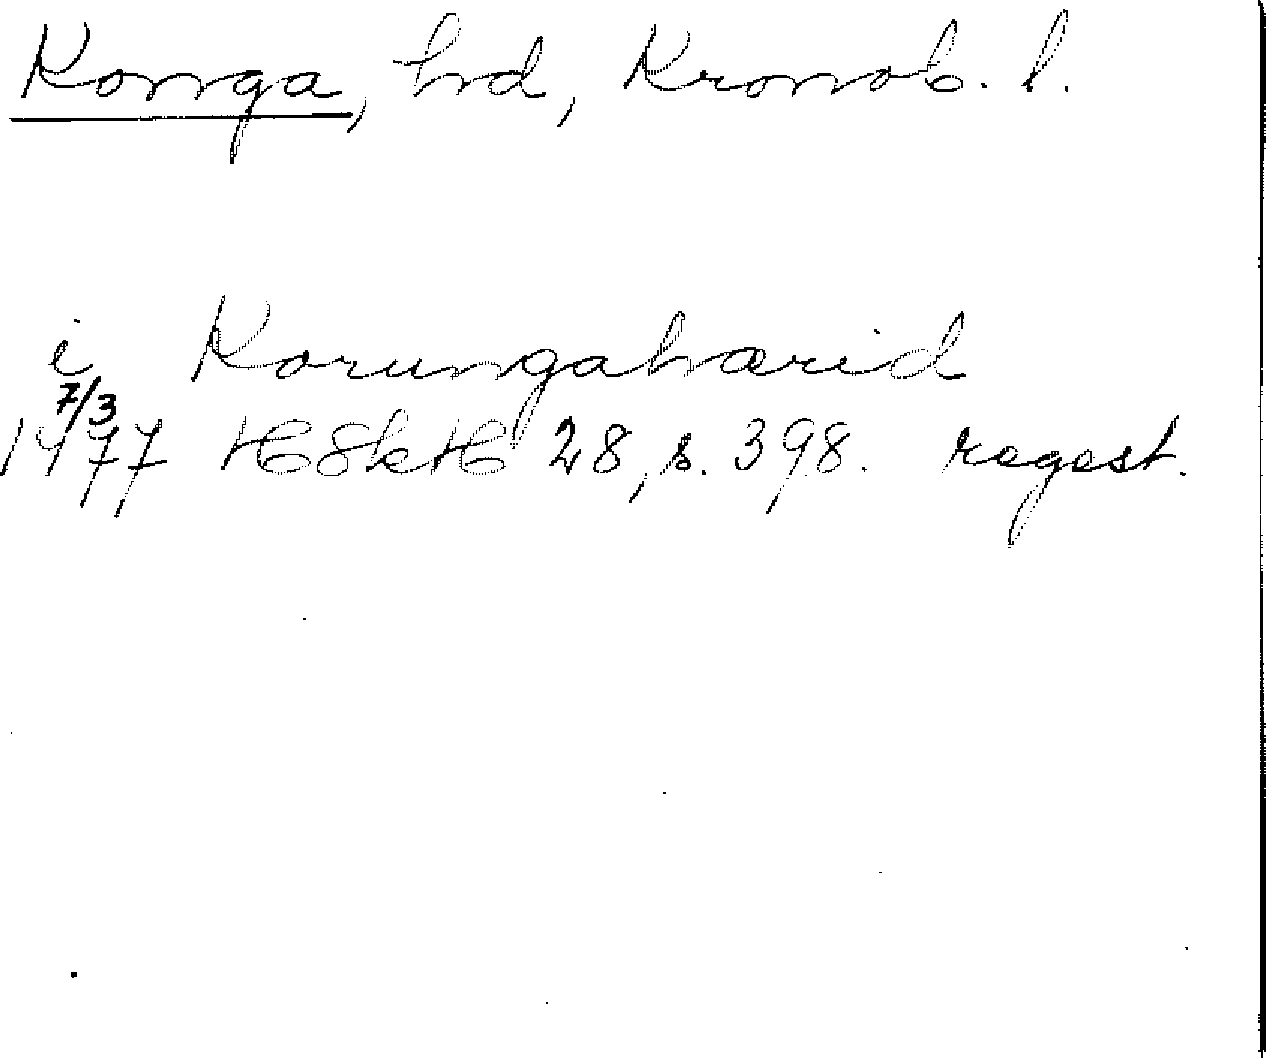 Konga, hrd, Kronob. l.
i Korungahærid
7/3
1477 HSkH 28, s. 398. regest.